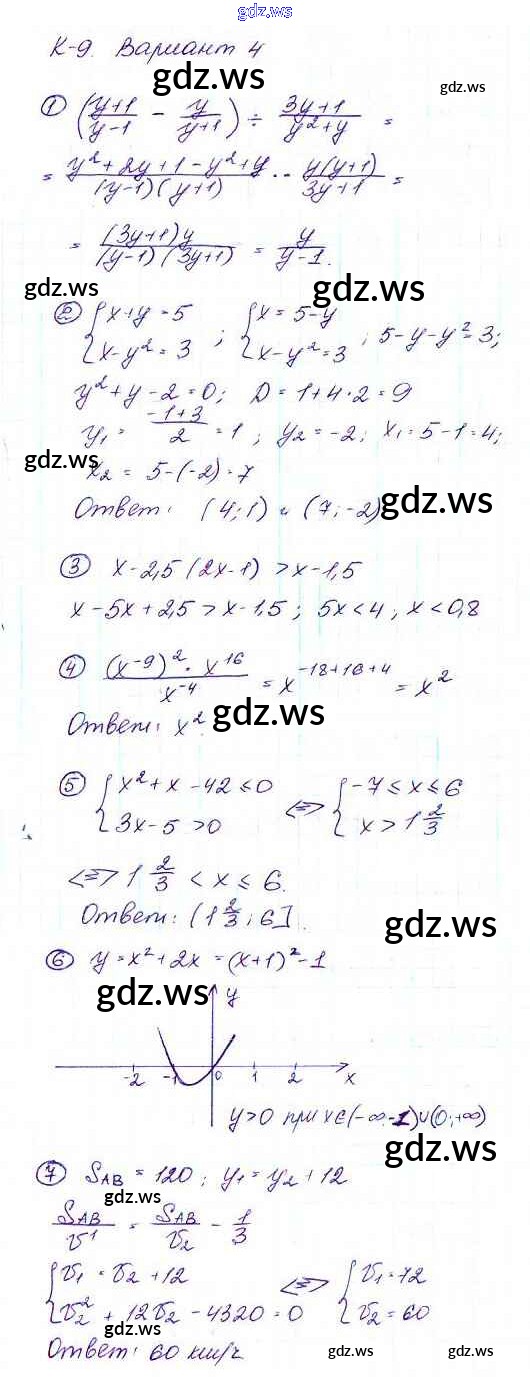 gdz.ws
К-9. Вариант 4
gdz.ws
gdz.ws
① ((y+1)/(y-1) - y/(y+1)) ÷ (3y+1)/(y²+y) =
= (y²+2y+1-y²+y)/((y-1)(y+1)) · (y(y+1))/(3y+1) =
= ((3y+1)y)/((y-1)(3y+1)) = y/(y-1).
gdz.ws
gdz.ws
② { x+y=5 ; { x=5-y ; 5-y-y²=3;
{ x-y²=3 { x-y²=3
y²+y-2=0; D=1+4·2=9
y₁= (-1+3)/2 =1; y₂=-2; x₁=5-1=4;
gdz.ws
x₂ = 5-(-2)=7
gdz.ws
Ответ: (4;1) и (7;-2)
③ x-2,5(2x-1)>x-1,5
x-5x+2,5>x-1,5; 5x<4, x<0,8
④ ((x⁻⁹)²·x¹⁶)/x⁻⁴ = x⁻¹⁸⁺¹⁶⁺⁴ = x²
Ответ: x².
gdz.ws
⑤ { x²+x-42≤0 <=> { -7≤x≤6
{ 3x-5>0 { x>1 2/3
<=> 1 2/3 < x ≤ 6.
Ответ: (1 2/3; 6].
gdz.ws
⑥ y=x²+2x=(x+1)²-1
gdz.ws
y
-2 -1 0 1 2 x
y>0 при x∈(-∞;-1)∪(0;+∞)
gdz.ws
⑦ S_AB = 120; y₁=y₂+12
gdz.ws
S_AB/v¹ = S_AB/v₂ - 1/3
gdz.ws
{ v₁=v₂+12 <=> { v₁=72
{ v₂²+12v₂-4320=0 { v₂=60
gdz.ws
Ответ: 60 км/ч
gdz.ws
gdz.ws